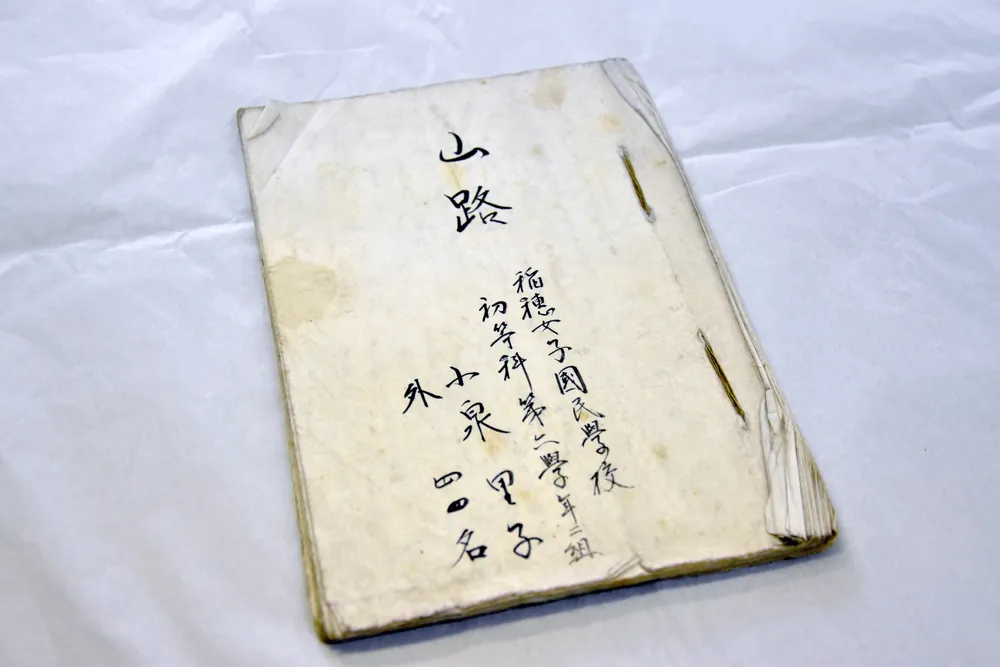 山路
稲穂女子國民學校
初等科第六學年二組
小泉里子
外四四名